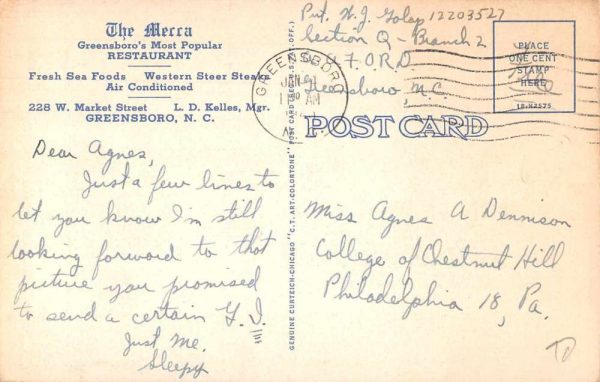 The Mecca
Greensboro's Most Popular
RESTAURANT
Fresh Sea Foods Western Steer Steaks
Air Conditioned
228 W. Market Street L. D. Kelles, Mgr.
GREENSBORO, N. C.
Dear Agnes,
Just a few lines to
let you know I'm still
looking forward to that
picture you promised
to send a certain G.I.
Just Me.
Sleepy
GENUINE CURTEICH-CHICAGO "C.T. ART-COLORTONE" POST CARD (REG. U.S. PAT. OFF.)
Pvt. N. J. 12203527
Section Q - Branch 2
O.R.D.
Greensboro, N.C.
GREENSBORO
JAN
AM
PLACE
ONE CENT
STAMP
HERE
1B-H2575
Free
POST CARD
Miss Agnes A Dennison
College of Chestnut Hill
Philadelphia 18, Pa.